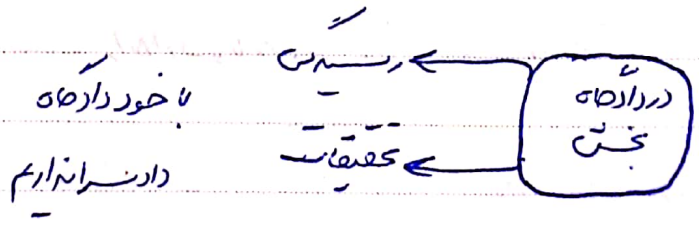 در دادگاه
بخش
رسیدگی
تحقیقات
با خود دادگاه
دادسرا نداریم